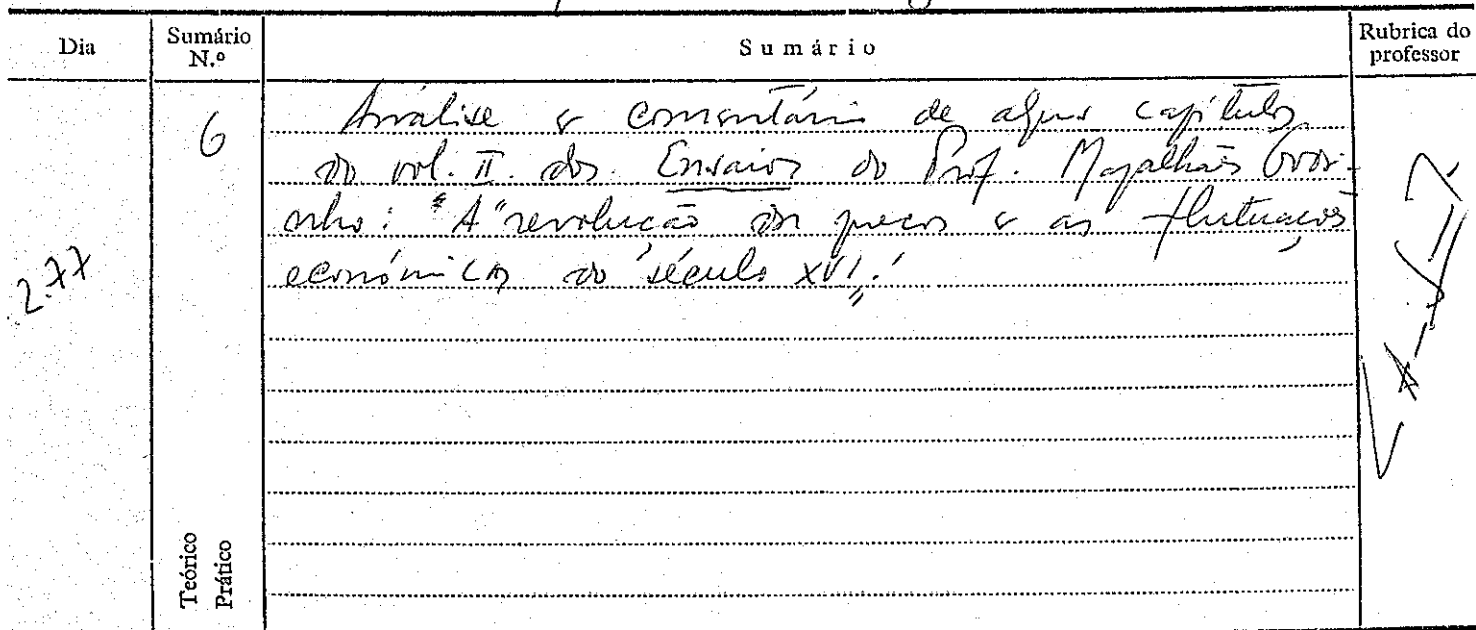 Dia
Sumário
N.º
Sumário
Rubrica do
professor
2.77
6
Análise e comentário de alguns capítulos
do vol. II. dos Ensaios do Prof. Magalhães Godi-
nho: "A "revolução dos preços e as flutuações
económicas do século XVI."
Teórico
Prático